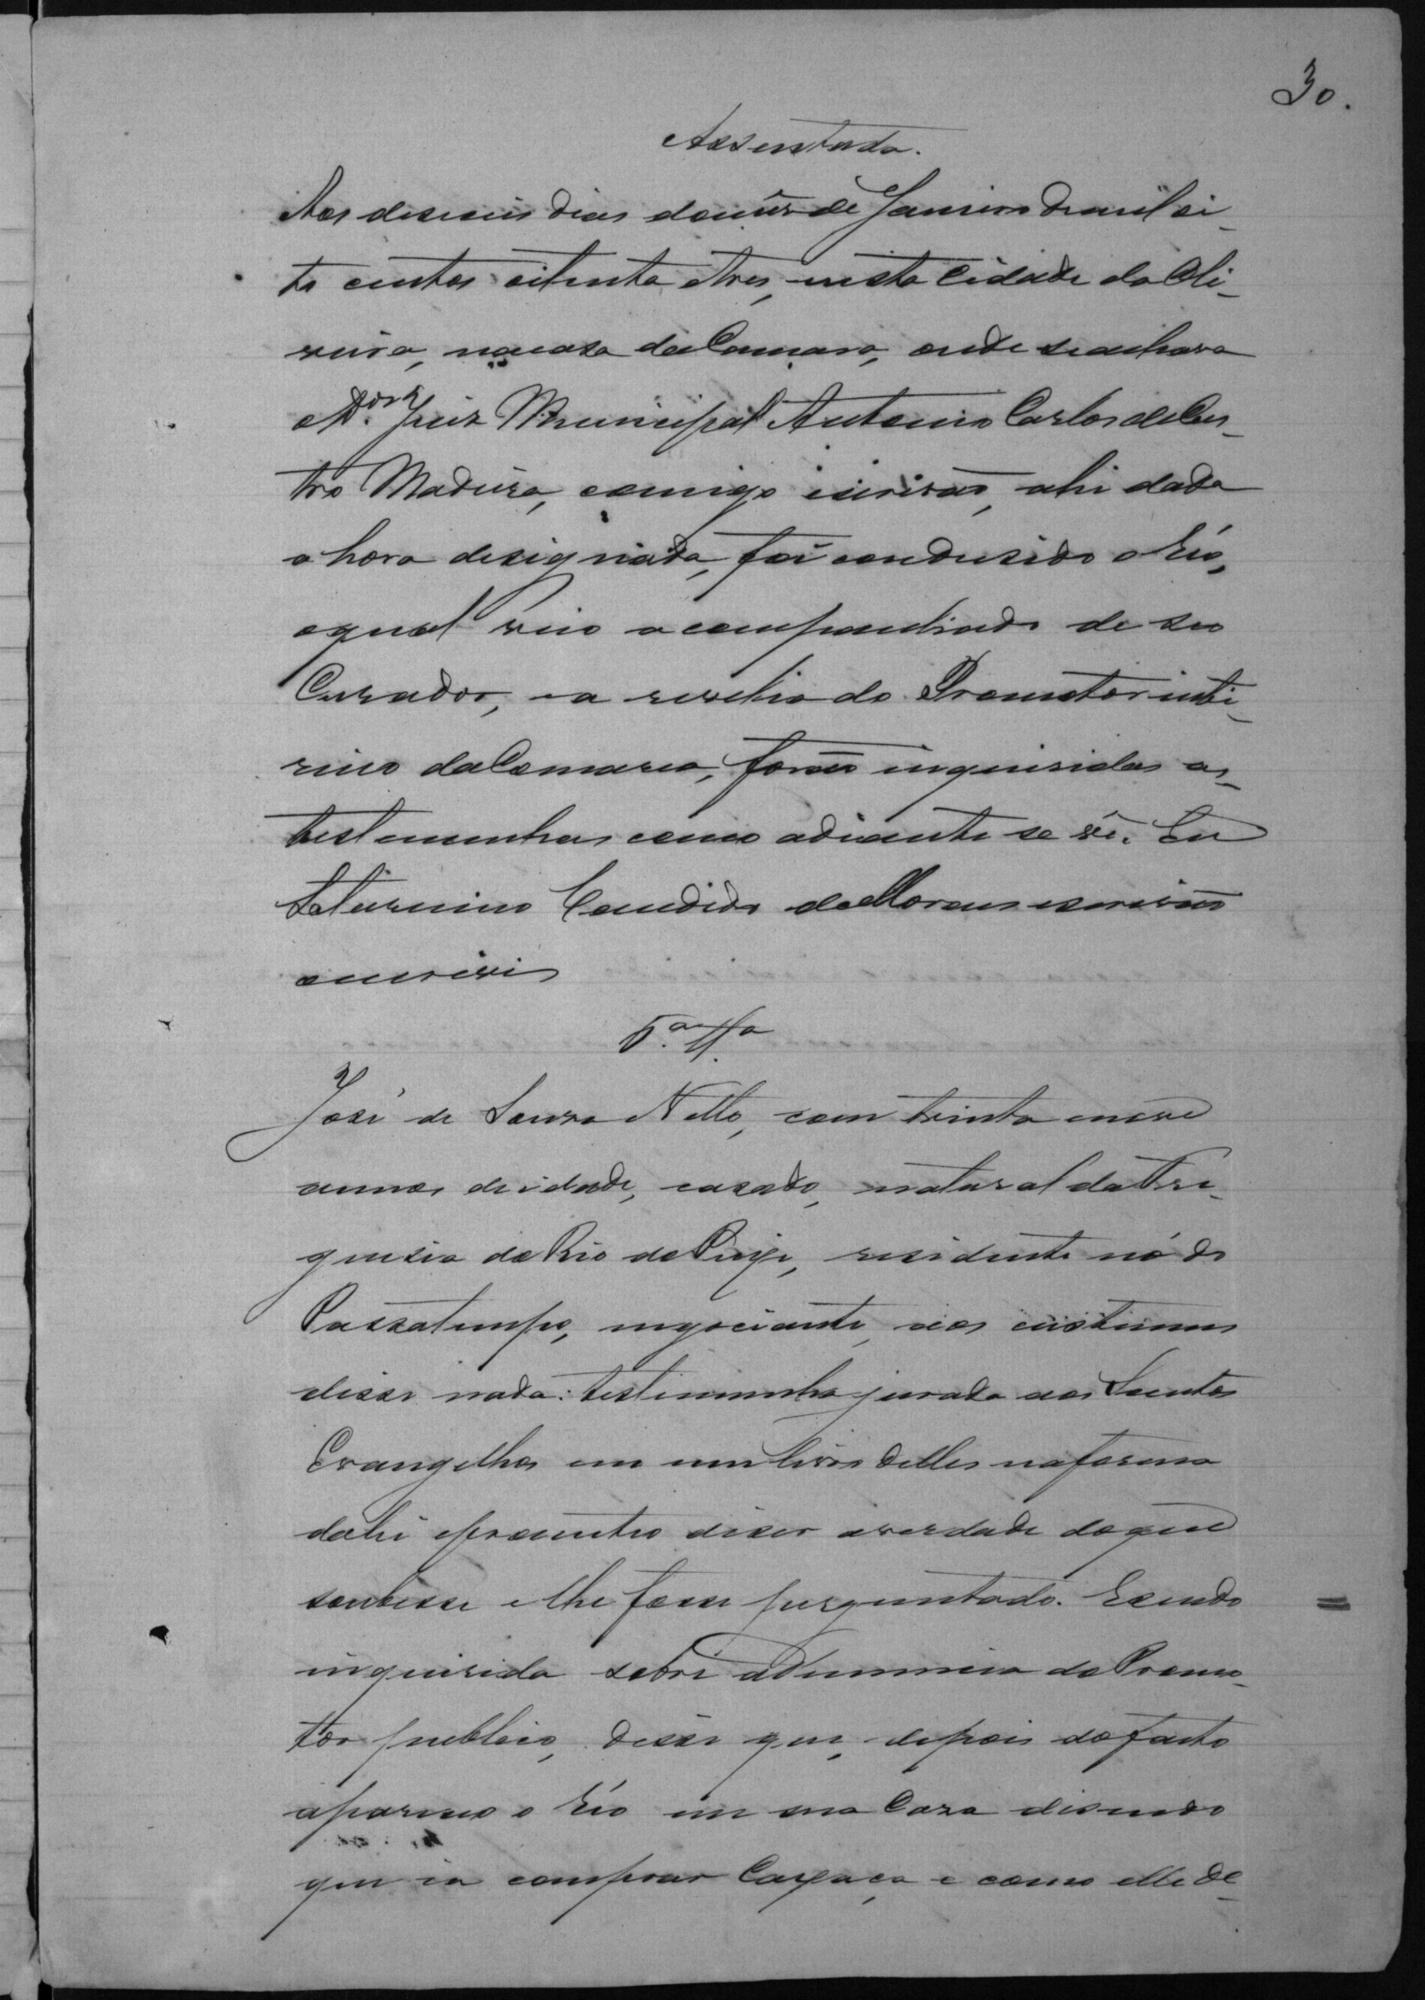 30.
Assentada.
Aos deseseis dias do mês de Janeiro de mil oi-
to centos oitenta e tres, nesta Cidade da Oli-
veira, na casa da Camara, onde se achava
o D.or Juiz Municipal Antonio Carlos de Cas-
tro Madeira, comigo escrivão, ahi dada
a hora designada, foi condusido o Réo,
o qual veio acompanhado de seu
Curador, e a revelia do Promotor inte-
rino da Comarca, forão inqueridas as
testemunhas como adiante se vê. Eu
Saturnino Candido de Moraes escrivão
o escrevi
5.a T.a
José de Souza Netto, com trinta e nove
annos de idade, casado, natural da Fre-
guesia do Rio do Peixe, residente nó do
Passatempo, negociante, aos custumes
disse nada: testemunha jurada aos Santos
Evangelhos em um livro delles na forma
da lei prometteo diser a verdade do que
soubesse e lhe fosse perguntado. E sendo
inquerida sobre a denuncia do Promo-
tor publico, disse que, depois do facto
apareceo o Réo em sua Casa disendo
que ia comprar Caxaça e como elle de-